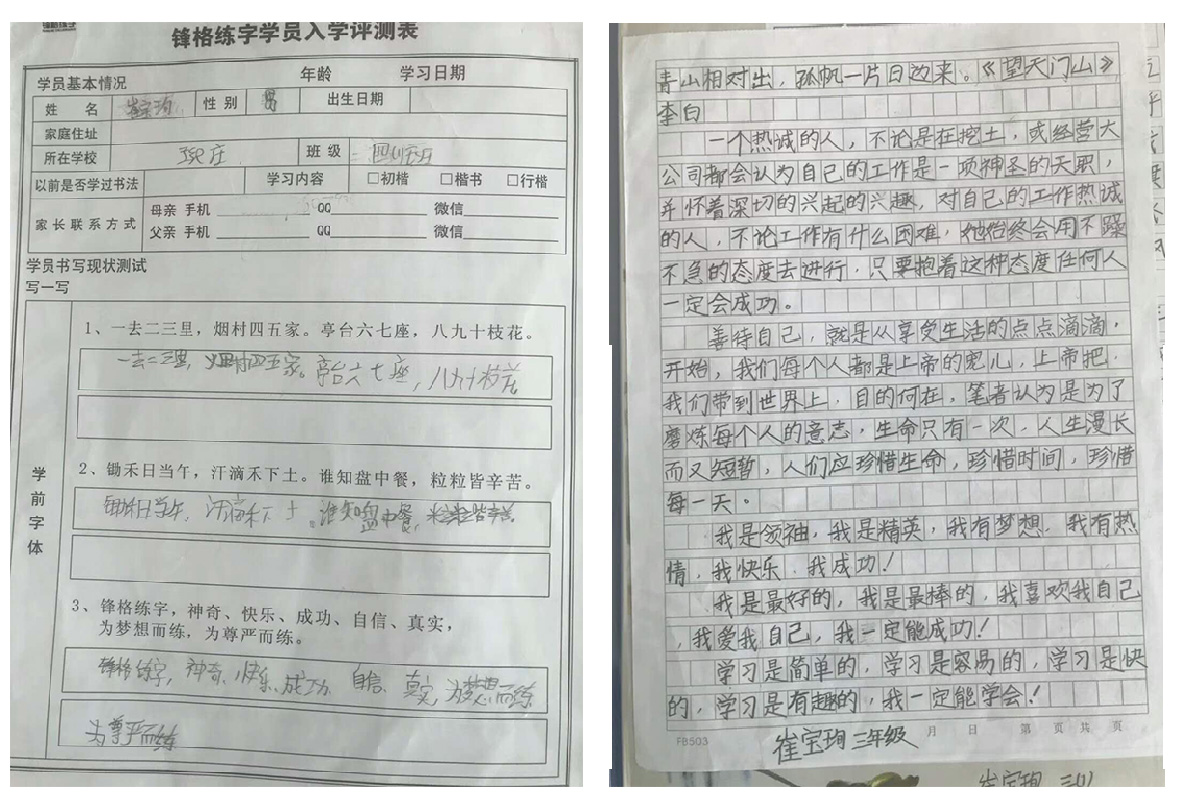 锋格练字学员入学评测表
学员基本情况 年龄 学习日期
姓名 崔宝珣 性别 男 出生日期
家庭住址
所在学校 班级
以前是否学过书法 学习内容 □初楷 □楷书 □行楷
家长联系方式 母亲 手机 QQ 微信
父亲 手机 QQ 微信
学员书写现状测试
写一写
学前字体
1、一去二三里，烟村四五家。亭台六七座，八九十枝花。
一去二三里，烟村四五家。亭台六七座，八九十枝花
2、锄禾日当午，汗滴禾下土。谁知盘中餐，粒粒皆辛苦。
锄禾日当午，汗滴禾下土。谁知盘中餐，粒粒皆辛苦
3、锋格练字，神奇、快乐、成功、自信、真实，
为梦想而练，为尊严而练。
锋格练字，神奇、快乐、成功、自信、真实，为梦想而练
为尊严而练
青山相对出，孤帆一片日边来。《望天门山》
李白
一个热诚的人，不论是在挖土，或经营大
公司都会认为自己的工作是一项神圣的天职，
并怀着深切的兴起的兴趣，对自己的工作热诚
的人，不论工作有什么困难，他始终会用不躁
不急的态度去进行，只要抱着这种态度任何人
一定会成功。
善待自己，就是从享受生活的点点滴滴，
开始，我们每个人都是上帝的宠儿，上帝把，
我们带到世界上，目的何在。笔者认为是为了
磨炼每个人的意志，生命只有一次，人生漫长
而又短暂，人们应珍惜生命，珍惜时间，珍惜
每一天。
我是领袖，我是精英，我有梦想，我有热
情，我快乐，我成功！
我是最好的，我是最棒的，我喜欢我自己
，我爱我自己，我一定能成功！
学习是简单的，学习是容易的，学习是快
的，学习是有趣的，我一定能学会！
FB503 崔宝珣 三年级 月 日 第 页 共 页
崔宝珣